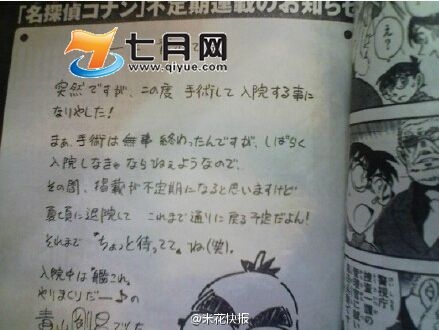 「名探偵コナン」不定期連載のお知らせ
七月网
www.qiyue.com
突然ですが、この度 手術して入院する事に
なりやした!
まぁ、手術は無事終わったんですが、しばらく
入院しなきゃならねぇようなので、
その間、掲載が不定期になると思いますけど
夏頃に退院して これまで通りに戻る予定だよん!
それまで "ちょっと待ってて" ね(笑)。
入院中は"艦これ"
やりまくりだー♪の
青山剛昌でした
え?
警視庁
捜査一課
管理官
@米花快报